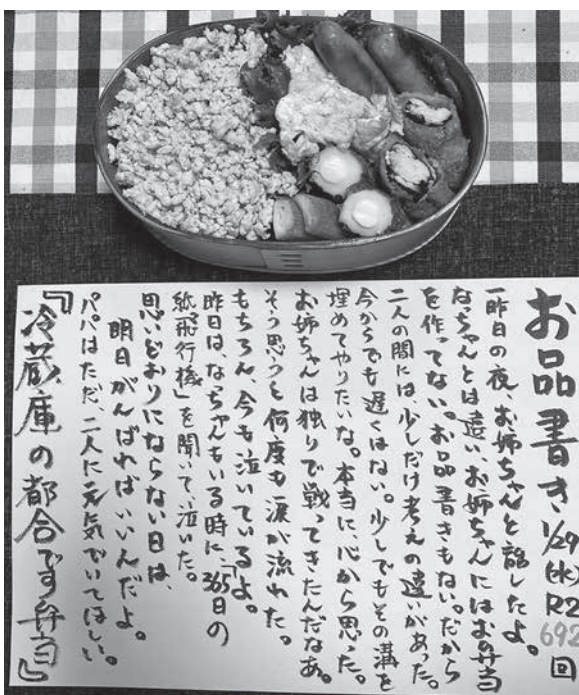 お品書き 1/29(水) R2 692回
一昨日の夜、お姉ちゃんと話したよ。
なっちゃんとは違い、お姉ちゃんにはお弁当
を作ってない。お品書きもない。だから
二人の間には、少しだけ考えの違いがあった。
今からでも遅くはない。少しでもその溝を
埋めてやりたいな。本当に、心から思った。
お姉ちゃんは独りで戦ってきたんだなあ。
そう思うと何度も涙が流れた。
もちろん、今も泣いているよ。
昨日は、なっちゃんもいる時に、「365日の
紙飛行機」を聞いて、泣いた。
思いどおりにならない日は、
明日がんばればいいんだよ。
パパはただ、二人に元気でいてほしい。
『冷蔵庫の都合です弁当』